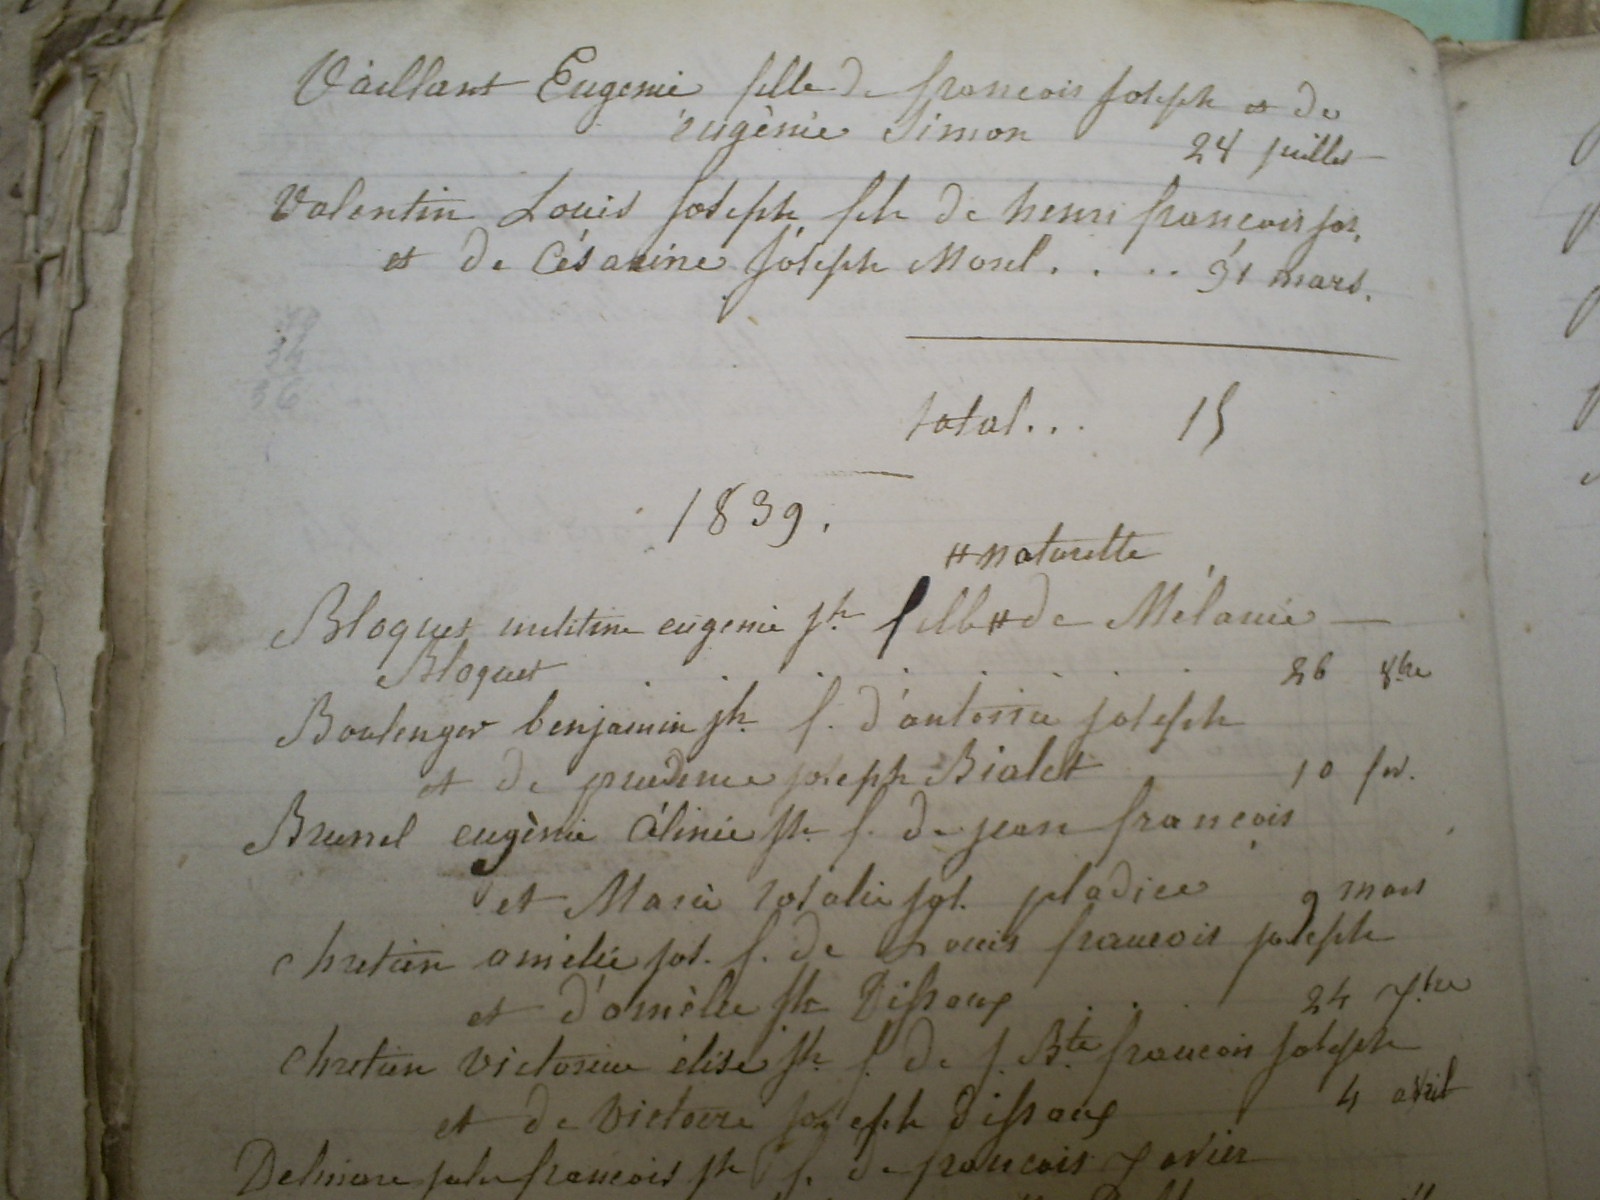 Vaillant Eugenie fille de françois joseph et de
eugènie Simon
24 juillet
Valentin Louis joseph fils de henri françois jos.
et de Césarine joseph Morel . . . . 31 mars.
total... 15
1839.
# naturelle
Bloquet eugenie jh fille # de Mélanie
Bloquet . . . . . . 26 8bre
Boulenger benjamin jh. f. d'antoine joseph
et de prudence joseph Bialet 10 fev.
Brunel eugènie Célinie jh. f. de jean françois
et Marie rosalie jos. pladiee 9 mars
chretien amélie jos. f. de Louis francois joseph
et d'amèlie jh Dissaux . . . 24 7bre
chretien Victorine élise jh. f. de j. Bte francois joseph
et de Victoire joseph Dissaux 4 avril
françois jh f. de francois Xavier